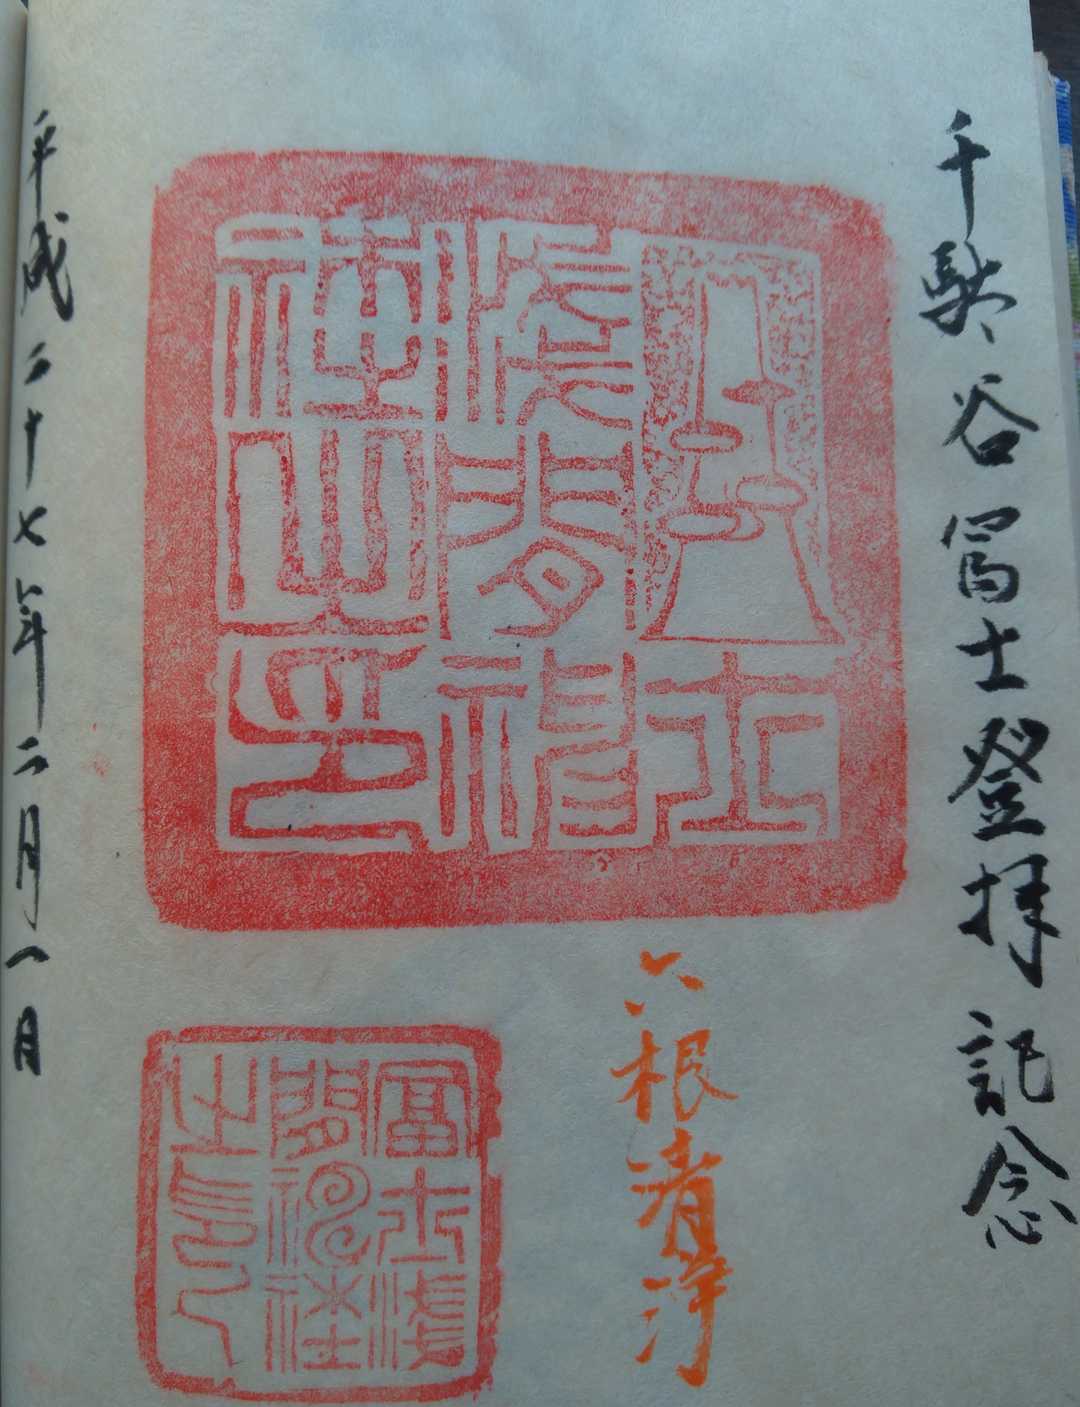 千駄谷冨士登拝記念
士
淺間神
社之印
六根清浄
富士淺
間神社
之印
平成二十七年二月一日